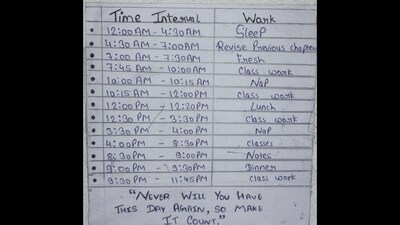 Time Interval Work
12:00 AM - 4:30 AM Sleep
4:30 AM - 7:00 AM Revise Previous chapters
7:00 AM - 7:30 AM Fresh
7:45 AM - 10:00 AM Class work
10:00 AM - 10:15 AM Nap
10:15 AM - 12:00 PM Class work
12:00 PM - 12:20 PM Lunch
12:30 PM - 3:30 PM Class work
3:30 PM - 4:00 PM Nap
4:00 PM - 8:30 PM classes
8:30 PM - 9:00 PM Notes
9:00 PM - 9:30 PM Dinner
9:30 PM - 11:45 PM class work
"NEVER WILL YOU HAVE
THIS DAY AGAIN, SO MAKE
IT COUNT."